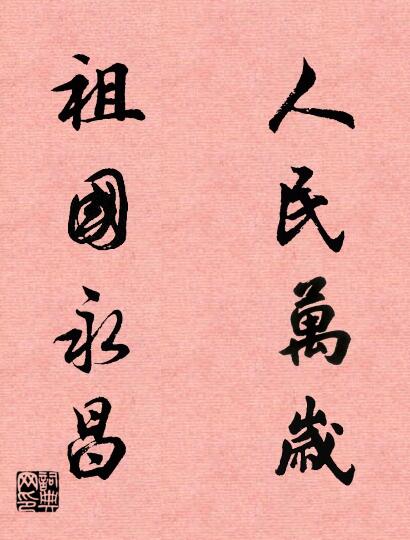 人民萬歲
祖國永昌
詞典網印